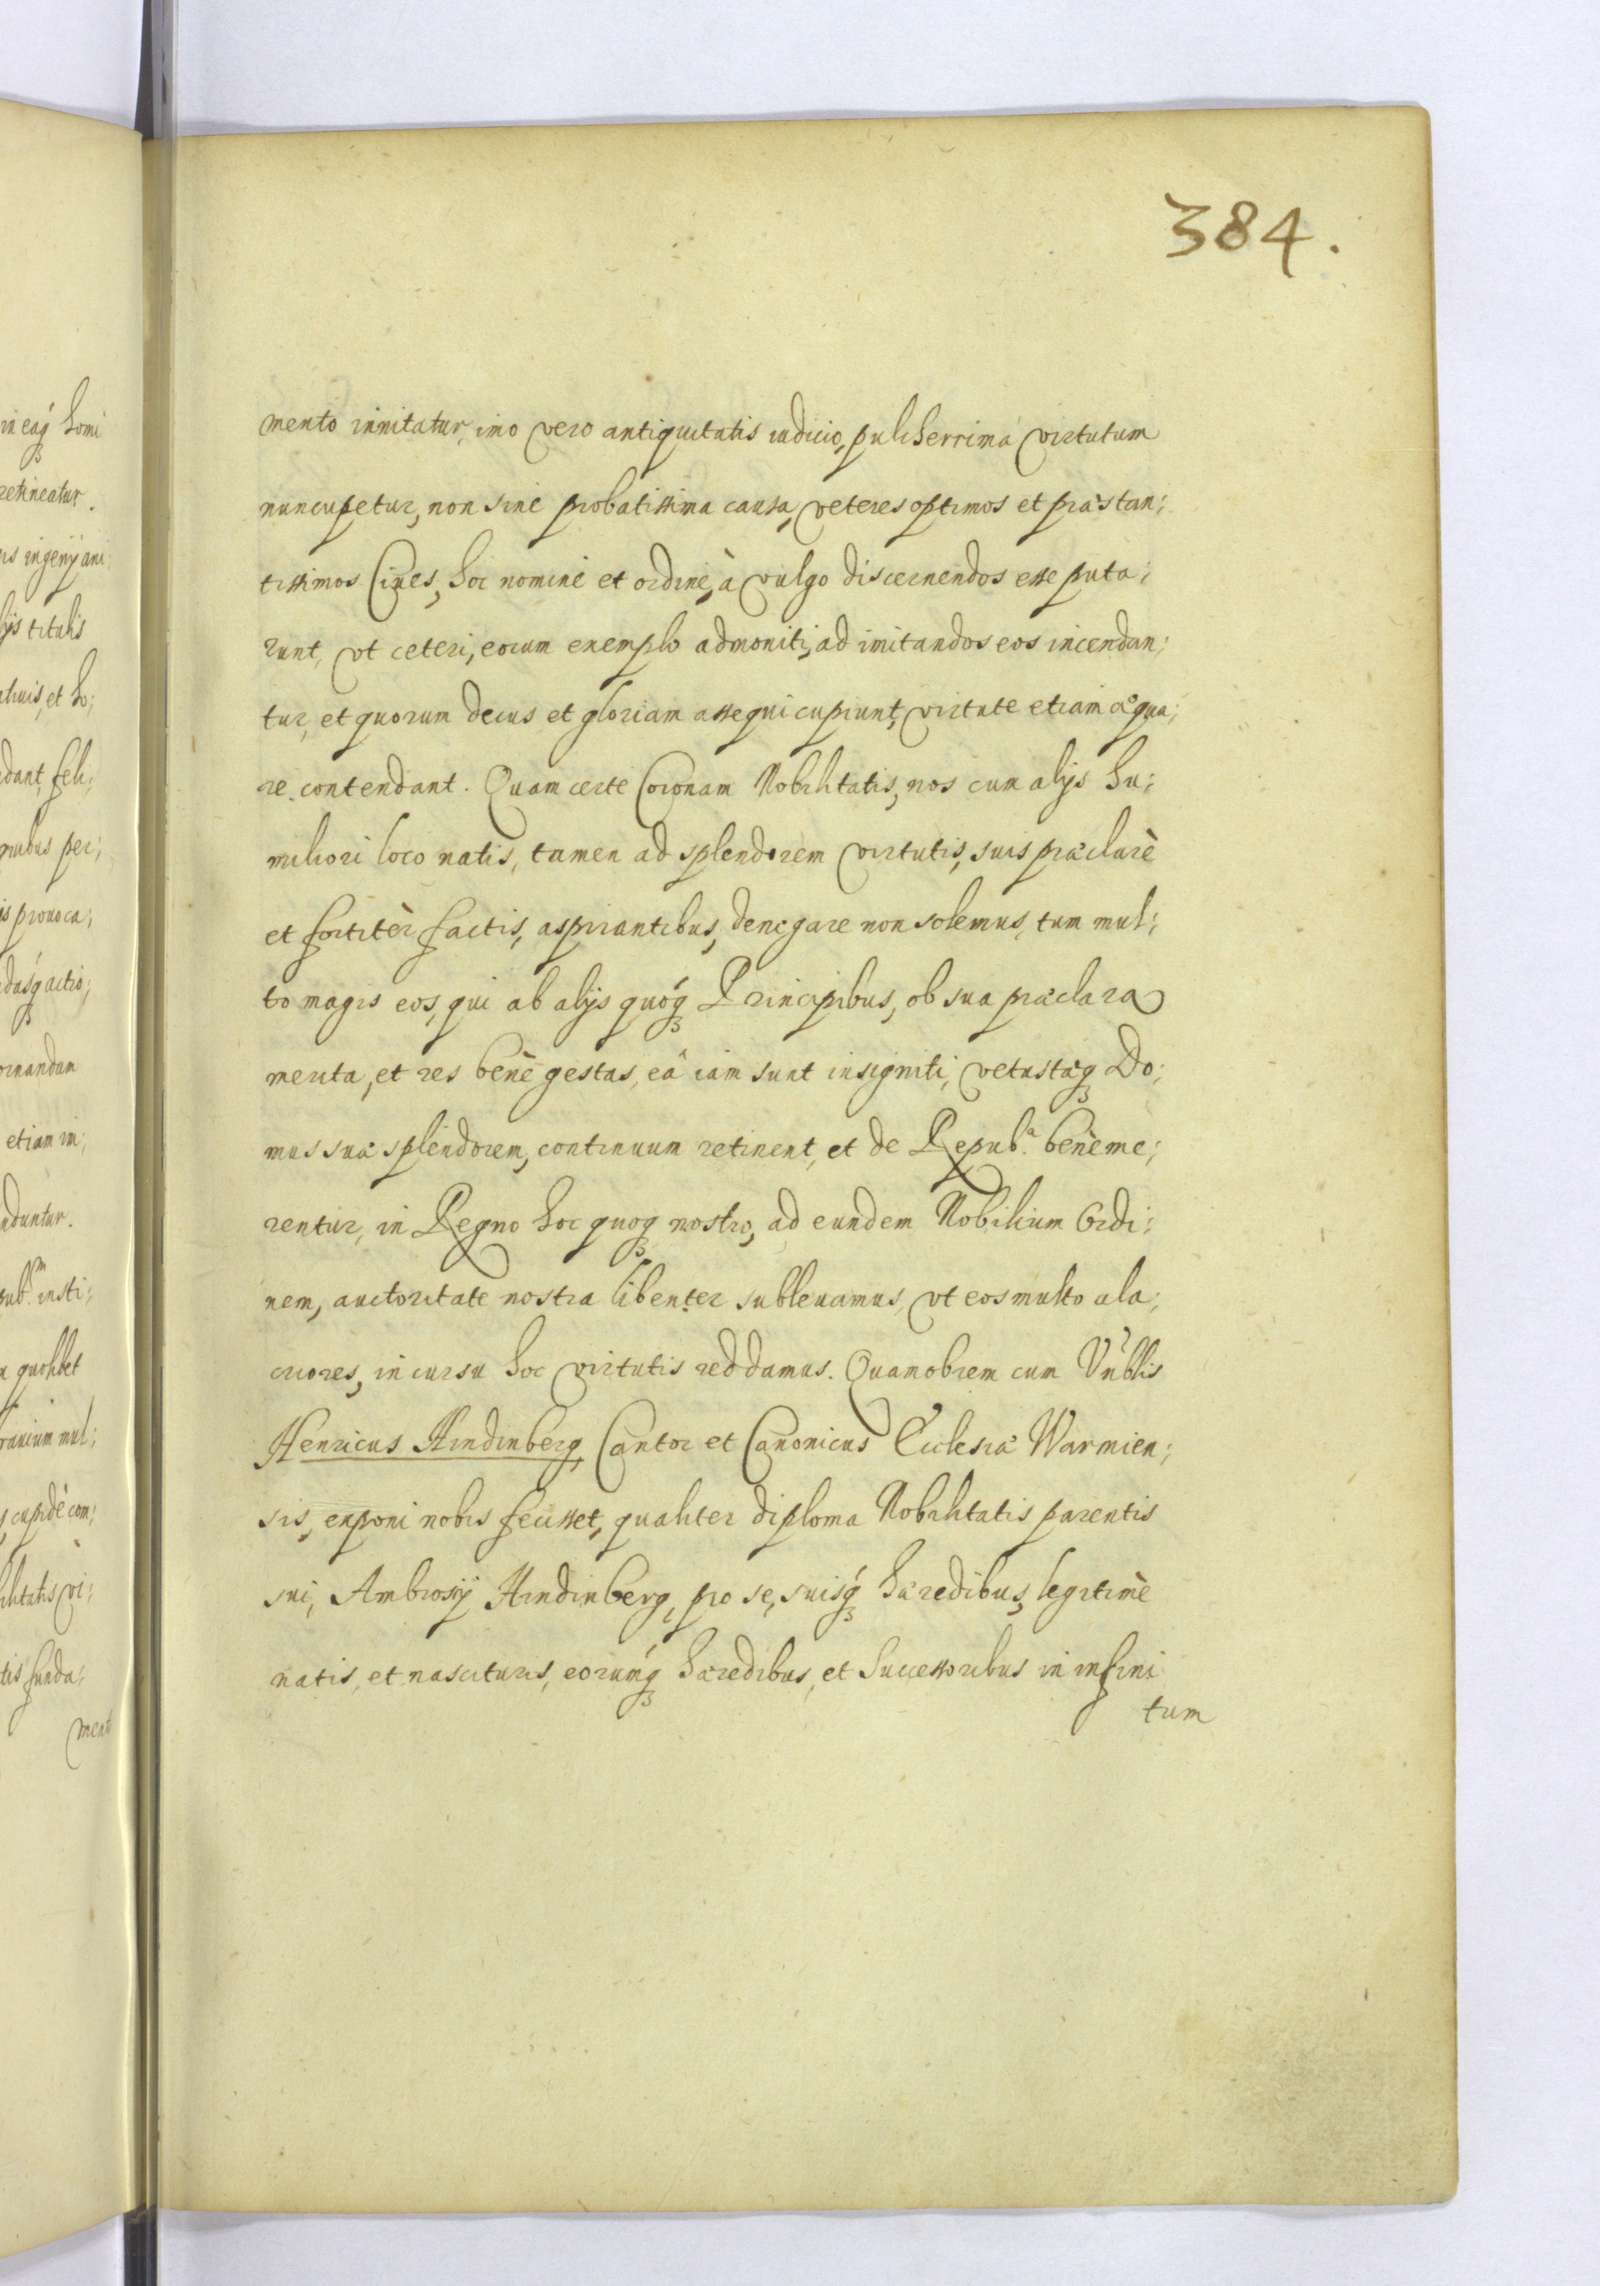 384.
mento innitatur, imo vero antiquitatis iudicio, pulcherrima virtutum
nuncupetur, non sine probatissima causa, veteres optimos et præstan;
tissimos Ciues, hoc nomine et ordine, à vulgo discernendos esse puta;
runt, vt ceteri, eorum exemplo admoniti, ad imitandos eos incendan;
tur, et quorum decus et gloriam assequi cupiunt, virtute etiam æqua;
re contendant. Quam certe Coronam Nobilitatis, nos cum alijs hu;
miliori loco natis, tamen ad splendorem virtutis, suis præclarè
et fortitèr factis, aspirantibus, denegare non solemus, tum mul;
to magis eos, qui ab alijs quóq; Principibus, ob sua præclara
merita, et res benè gestas, eâ iam sunt insigniti, vetustæq; Do;
mus suæ splendorem, continuum retinent, et de Repub.ª benème;
rentur, in Regno hoc quoq; nostro, ad eundem Nobilium Ordi;
nem, auctoritate nostra libenter subleuamus, vt eos multo ala;
criores, in cursu hoc virtutis reddamus. Quamobrem cum Vnblis
Henricus Hindinberg, Cantor et Canonicus Ecclesiæ Warmien;
sis, exponi nobis fecisset, qualiter diploma Nobilitatis parentis
sui, Ambrosij Hindinberg, pro se, suisq́; hæredibus, legitimè
natis, et nascituris, eorumq́; hæredibus, et Successoribus in infini
tum
in eaq́; homi
retineatur.
ingenij ani
titulis
et ho;
dant, feli;
quibus per;
prouoca;
actio;
ornandam
etiam in;
duntur.
insti;
quolibet
mul;
cupidè com;
vi;
funda;